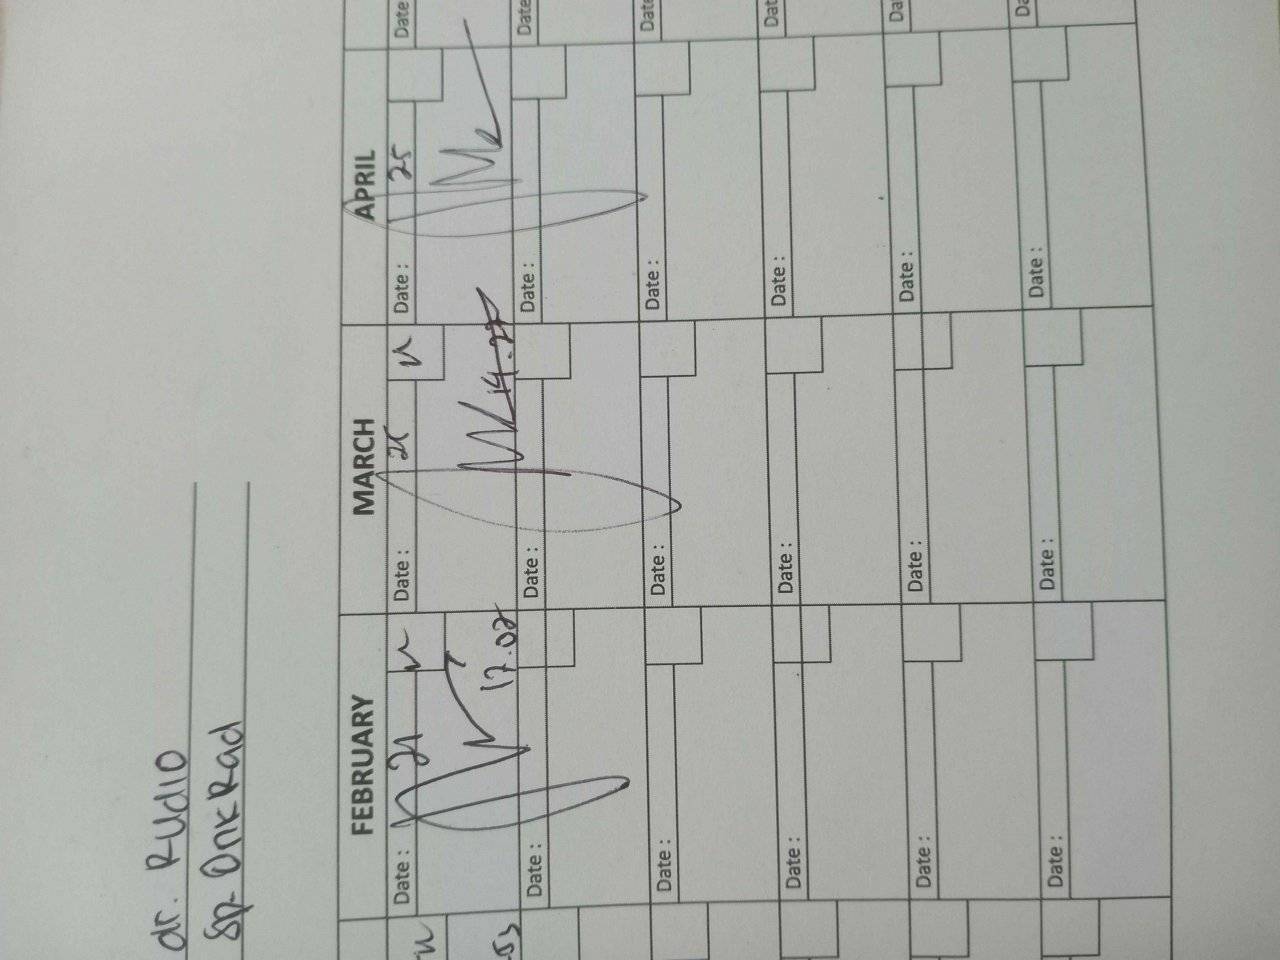 dr. Rudio
Sp. Onk Rad
FEBRUARY MARCH APRIL
Date : 21 Date : 25 Date : 25 Date
17.02 14.27
Date : Date : Date : Date
Date : Date : Date : Date
Date : Date : Date : Dat
Date : Date : Date : Da
Date : Date : Date : Da